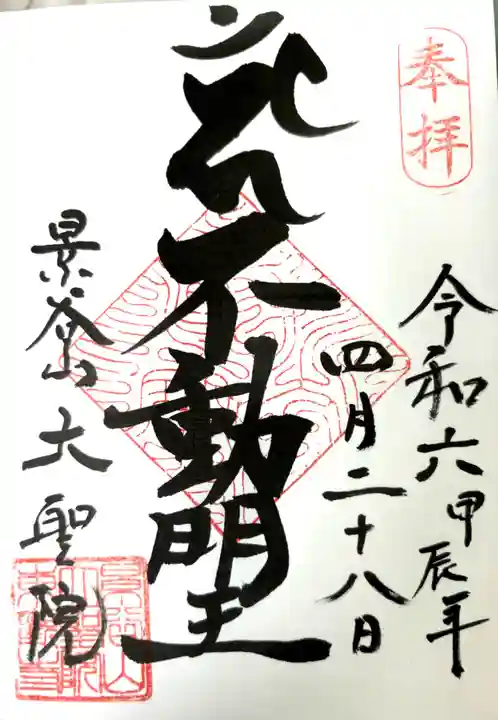 奉拝
令和六甲辰年
四月二十八日
不動明王
景谷山大聖院